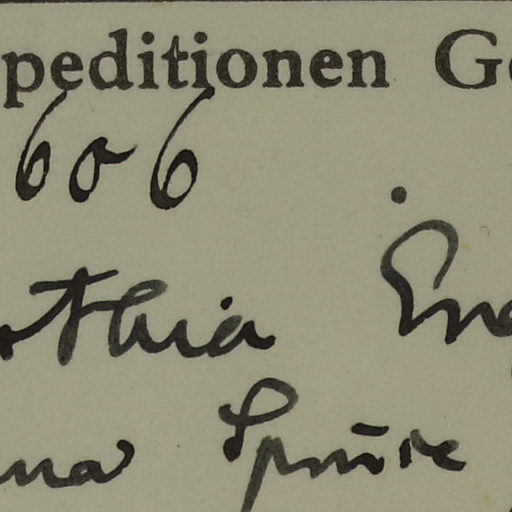 peditionen Ge
606
othia Eng
na Spruce